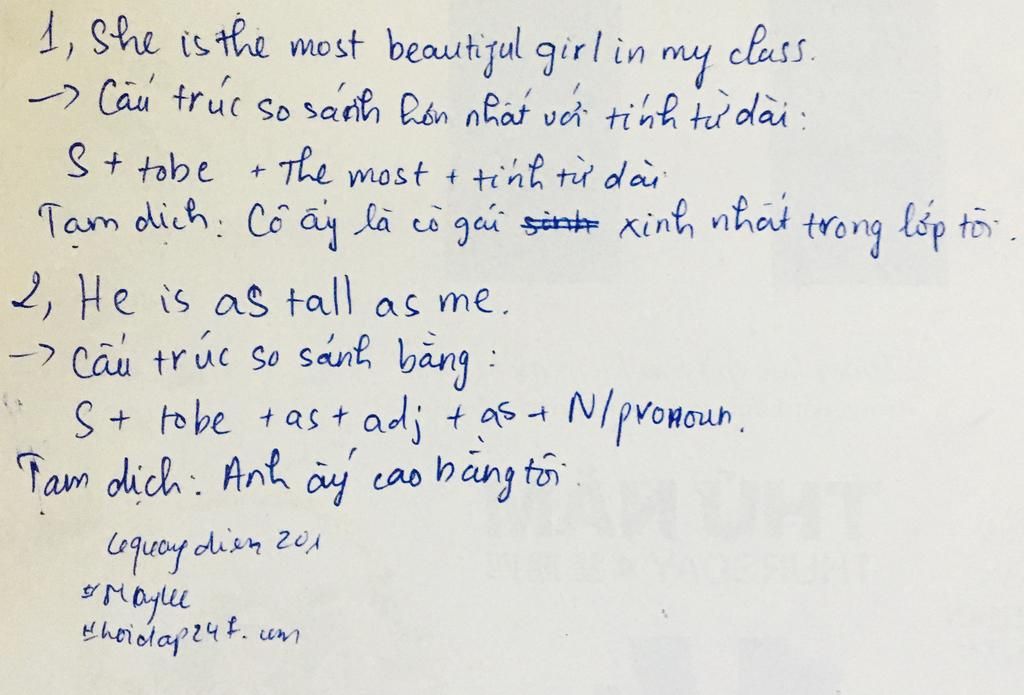 1, She is the most beautiful girl in my class.
-> Cấu trúc so sánh hơn nhất với tính từ dài:
S + tobe + The most + tính từ dài
Tạm dịch: Cô ấy là cô gái sinh xinh nhất trong lớp tôi.
2, He is as tall as me.
-> Cấu trúc so sánh bằng:
S + tobe + as + adj + as + N/pronoun.
Tạm dịch: Anh ấy cao bằng tôi.
201
#Maylee
THỨ NĂM
THURSDAY